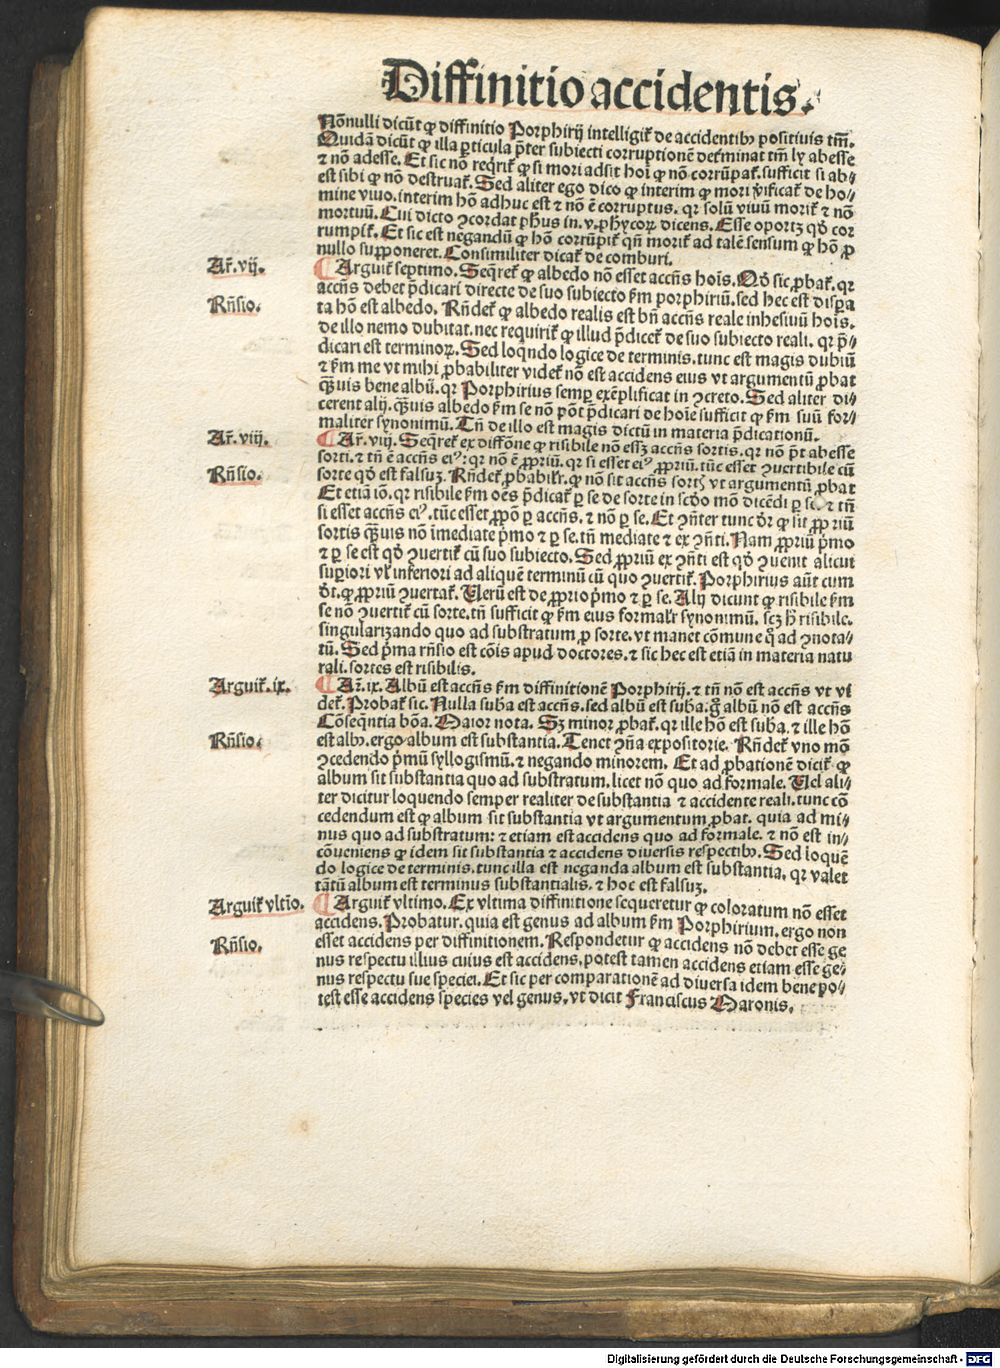 Diffinitio accidentis.
Nōnulli dicūt ꝙ diffinitio Porphirij intelligit̃ de accidentibꝰ positiuis tm̄.
Quidā dicūt ꝙ illa ꝑticula p̄ter subiecti corruptionē det̃minat tm̄ ly abesse
⁊ nō adesse. Et sic nō req̃rit̃ ꝙ si mori adsit hoī ꝙ nō corrūpat̃. sufficit si ab⸗
est sibi ꝙ nō destruat̃. Sed aliter ego dico ꝙ interim ꝙ mori v̓ificat̃ de ho⸗
mine viuo. interim hō adhuc est ⁊ nō ē corruptus. qr solū viuū morit̃ ⁊ nō
mortuū. Cui dicto ꝯcordat ph̓us in. v. phycoꝝ dicens. Esse oportꝫ qd̓ cor
rumpit̃. Et sic est negandū ꝙ hō corrūpit̃ qn̄ morit̃ ad talē sensum ꝙ hō ꝓ
nullo supponeret. Consimiliter dicat̃ de comburi.
Ar̃. vij.
¶ Arguit̃ septimo. Seq̃ret̃ ꝙ albedo nō esset accn̄s hoīs. Qd̓ sic ꝓbat̃. qr
accn̄s debet p̄dicari directe de suo subiecto ẜm porphiriū. sed hec est disꝑa
Rn̄sio.
ta hō est albedo. Rn̄det̃ ꝙ albedo realis est bn̄ accn̄s reale inhesiuū hoīs.
de illo nemo dubitat. nec requirit̃ ꝙ illud p̄dicet̃ de suo subiecto reali. qr p̄⸗
dicari est terminoꝝ. Sed loqn̄do logice de terminis. tunc est magis dubiū
⁊ ẜm me vt mihi ꝓbabiliter videt̃ nō est accidens eius vt argumentū ꝓbat
qͣ̄uis bene albū. qr Porphirius semꝑ exēplificat in ꝯcreto. Sed aliter di⸗
cerent alij. qͣ̄uis albedo ẜm se nō pōt p̄dicari de hoīe sufficit ꝙ ẜm suū for⸗
maliter synonimū. Tn̄ de illo est magis dictū in materia p̄dicationū.
Ar̃. viij.
¶ Ar̃. viij. Seq̃ret̃ ex diffōne ꝙ risibile nō essꝫ accn̄s sortis. qr nō p̄t abesse
sorti. ⁊ tn̄ ē accn̄s eiꝰ: qr nō ē ꝓpriū. qr si esset eiꝰ ꝓpriū. tūc esset ꝯuertibile cū
Rn̄sio.
sorte qd̓ est falsuꝫ. Rn̄det̃ ꝓbabilr̃. ꝙ nō sit accn̄s sortꝭ vt argumentū ꝓbat
Et etiā iō. qr risibile ẜm oēs p̄dicat̃ ꝑ se de sorte in scd̓o mō dicēdi ꝑ se ⁊ tn̄
si esset accn̄s eiꝰ. tūc esset ꝓpō ꝑ accn̄s. ⁊ nō ꝑ se. Et ꝯn̄ter tunc dr̃ ꝙ sit ꝓpriū
sortis qͣ̄uis nō īmediate p̓mo ⁊ ꝑ se. tn̄ mediate ⁊ ex ꝯn̄ti. Nam ꝓpriū p̓mo
⁊ ꝑ se est qd̓ ꝯuertit̃ cū suo subiecto. Sed ꝓpriū ex ꝯn̄ti est qd̓ ꝯuenit alicui
suꝑiori vl̓ inferiori ad aliquē terminū cū quo ꝯuertit̃. Porphirius aūt cum
dt̓. ꝙ ꝓpriū ꝯuertat̃. Uerū est de ꝓprio p̓mo ⁊ ꝑ se. Alij dicunt ꝙ risibile ẜm
se nō ꝯuertit̃ cū sorte. tn̄ sufficit ꝙ ẜm eius formalr̃ synonimū. scꝫ h̓ risibile.
singularizando quo ad substratum ꝓ sorte. vt manet cōmune q̊ ad ꝯnota⸗
tū. Sed p̓ma rn̄sio est cōis apud doctores. ⁊ sic hec est etiā in materia natu
rali. sortes est risibilis.
Arguit̃. ix.
¶ Ar̃. ix. Albū est accn̄s ẜm diffinitionē Porphirij. ⁊ tn̄ nō est accn̄s vt vi
det̃. Probat̃ sic. Nulla suba est accn̄s. sed albū est suba. g̊ albū nō est accn̄s
Cōseq̄ntia bōa. Maior nota. Sꝫ minor ꝓbat̃. qr ille hō est suba. ⁊ ille hō
Rn̄sio.
est albꝰ. ergo album est substantia. Tenet ꝯn̄a expositorie. Rn̄det̃ vno mō
ꝯcedendo p̓mū syllogismū. ⁊ negando minorem. Et ad ꝓbationē dicit̃ ꝙ
album sit substantia quo ad substratum. licet nō quo ad formale. Uel ali⸗
ter dicitur loquendo semper realiter de substantia ⁊ accidente reali. tunc cō
cedendum est ꝙ album sit substantia vt argumentum ꝓbat. quia ad mi⸗
nus quo ad substratum: ⁊ etiam est accidens quo ad formale. ⁊ nō est in⸗
cōueniens ꝙ idem sit substantia ⁊ accidens diuersis respectibꝰ. Sed loquē
do logice de terminis. tunc illa est neganda album est substantia. qr valet
tātū album est terminus substantialis. ⁊ hoc est falsuꝫ.
Arguit̃ vltīo.
¶ Arguit̃ vltimo. Ex vltima diffinitione sequeretur ꝙ coloratum nō esset
accidens. Probatur. quia est genus ad album ẜm Porphirium. ergo non
Rn̄sio.
esset accidens per diffinitionem. Respondetur ꝙ accidens nō debet esse ge
nus respectu illius cuius est accidens. potest tamen accidens etiam esse ge⸗
nus respectu sue speciei. Et sic per comparationē ad diuersa idem bene po⸗
test esse accidens species vel genus. vt dicit Franciscus Maronis.
Digitalisierung gefördert durch die Deutsche Forschungsgemeinschaft - DFG